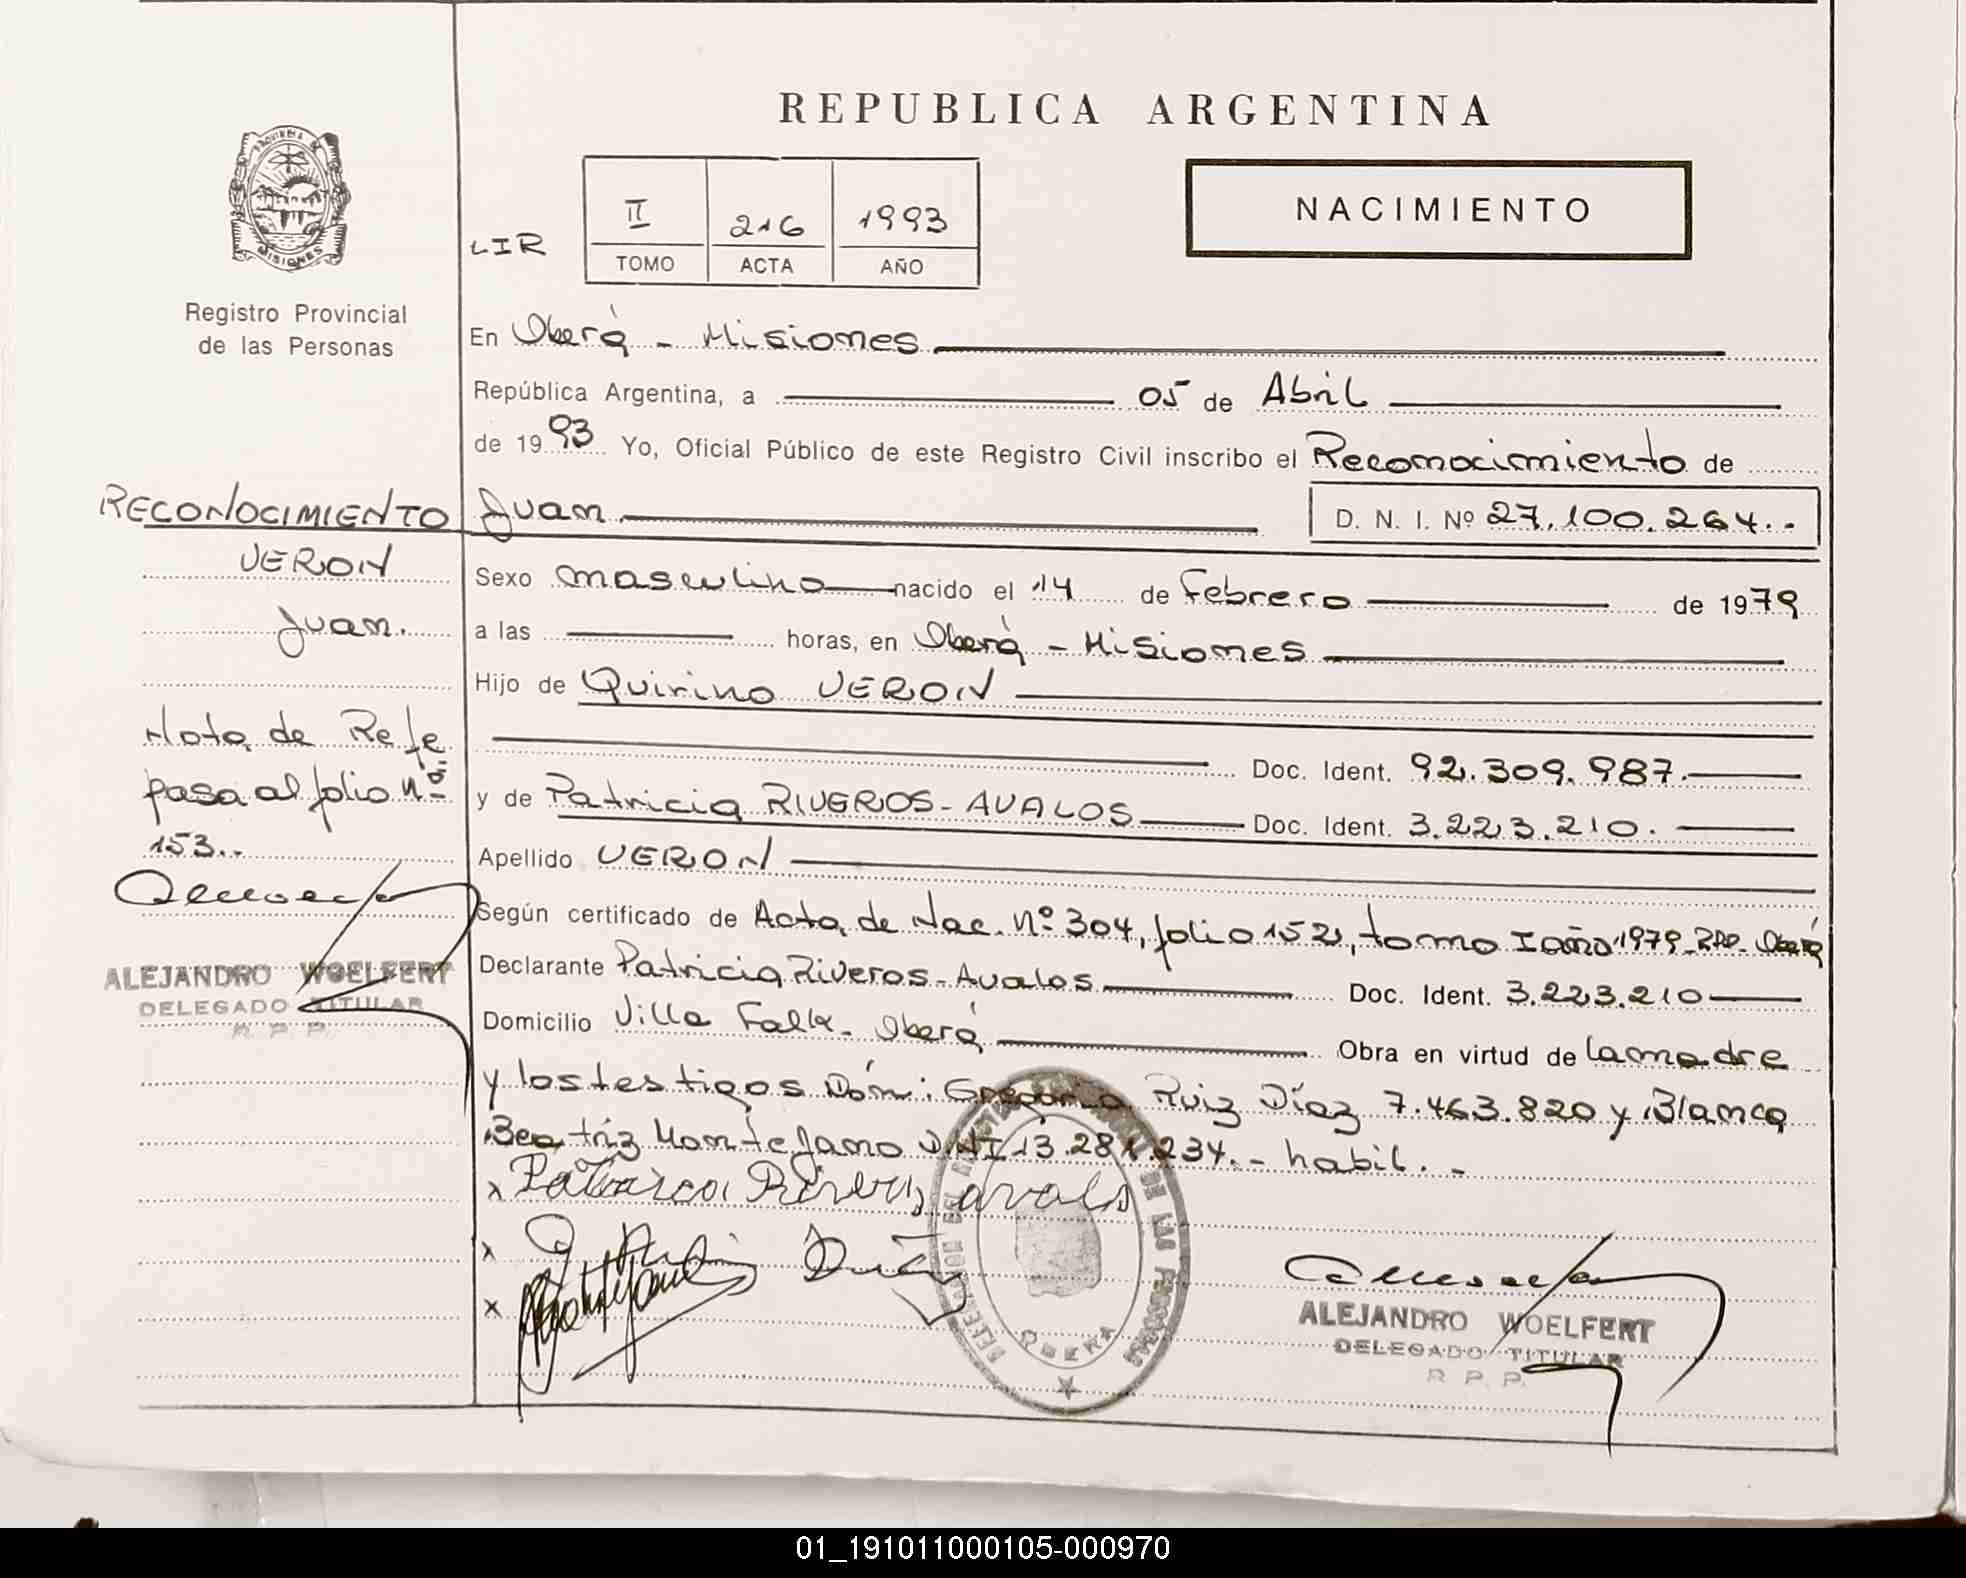 REPUBLICA ARGENTINA
PROVINCIA DE MISIONES
LIR
II 216 1993
TOMO ACTA AÑO
NACIMIENTO
Registro Provincial
de las Personas
En Oberá - Misiones
República Argentina, a 05 de Abril
de 1993 Yo, Oficial Público de este Registro Civil inscribo el Reconocimiento de
Juan D. N. I. Nº 27.100.264..
Sexo masculino nacido el 14 de Febrero de 1979
a las horas, en Oberá - Misiones
Hijo de Quirino VERON
Doc. Ident. 92.309.987.
y de Patricia RIVEROS-AVALOS Doc. Ident. 3.223.210.
Apellido VERON
Según certificado de Acta de Nac. Nº 304, folio 152, tomo I año 1979-RPP-Oberá
Declarante Patricia Riveros-Avalos Doc. Ident. 3.223.210
Domicilio Villa Falk- Oberá Obra en virtud de la madre
y los testigos Dom: Gregorio Ruiz Díaz 7.463.820 y Blanca
Beatriz Montejano DNI 13.281.234.- habil.-
x Patricia Riveros avalos
x
x
RECONOCIMIENTO
VERON
Juan.
Nota de Refe
pasa al folio nº
153..
ALEJANDRO WOELFERT
DELEGADO TITULAR
R. P. P.
DE LAS PERSONAS
OBERA
ALEJANDRO WOELFERT
DELEGADO TITULAR
R. P. P.
01_191011000105-000970